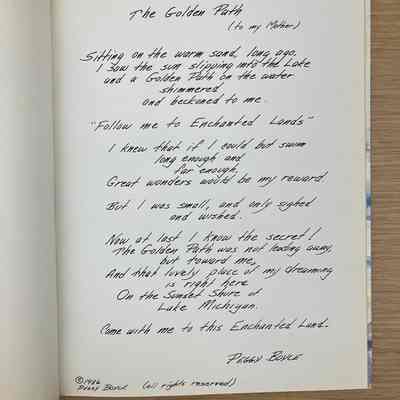 The Golden Path
(to my Mother)
Sitting on the warm sand, long ago,
I saw the sun slipping into the Lake
and a Golden Path on the water
shimmered
and beckoned to me.
"Follow me to Enchanted Lands"
I knew that if I could but swim
long enough and
far enough,
Great wonders would be my reward.
But I was small, and only sighed
and wished.
Now at last I know the secret!
The Golden Path was not leading away,
but toward me,
And that lovely place of my dreaming
is right here
On the Sunset Shore of
Lake Michigan.
Come with me to this Enchanted Land.
Peggy Boyce
©1986
Peggy Boyce (all rights reserved)